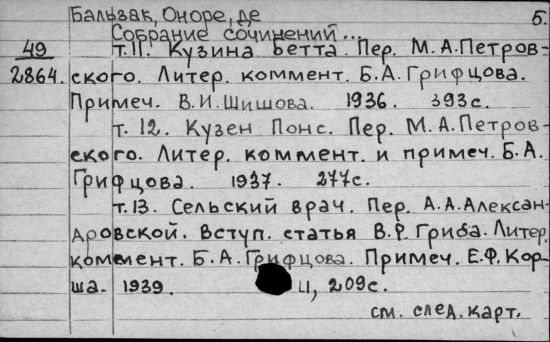 Бальзак, Оноре, де 5.
Собрание сочинений...
49 т.11. Кузина Бетта. Пер. М.А.Петров-
2864. ского. Литер. коммент. Б.А.Грифцова.
Примеч. В.И.Шишова. 1936. 393с.
т. 12. Кузен Понс. Пер. М.А.Петров-
ского. Литер. коммент. и примеч. Б.А.
Грифцова. 1937. 277с.
т.13. Сельский врач. Пер. А.А.Алексан-
дровской. Вступ. статья В.Р.Гриба. Литер.
коммент. Б.А.Грифцова. Примеч. Е.Ф.Кор-
ша. 1939. 209с.
см. след. карт.